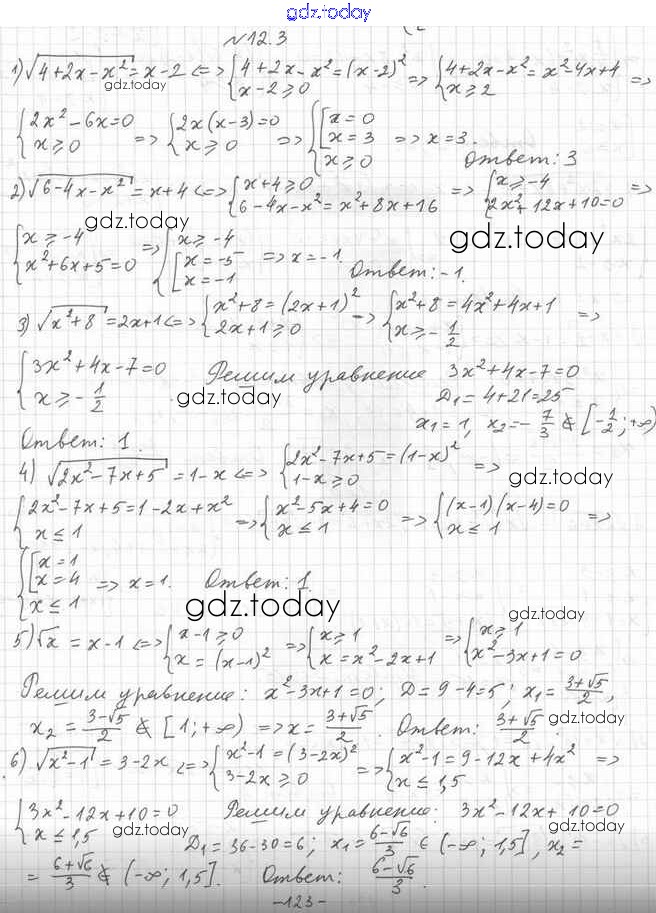 gdz.today
№12.3
1) √(4+2x-x²) = x-2 <=> {4+2x-x²=(x-2)² x-2≥0 => {4+2x-x²=x²-4x+4 x≥2 =>
gdz.today
{2x²-6x=0 x≥0 => {2x(x-3)=0 x≥0 => {[x=0 x=3 x≥0 => x=3.
Ответ: 3
2) √(6-4x-x²) = x+4 <=> {x+4≥0 6-4x-x²=x²+8x+16 => {x≥-4 2x²+12x+10=0 =>
gdz.today
gdz.today
{x≥-4 x²+6x+5=0 => {x≥-4 [x=-5 x=-1 => x=-1
Ответ: -1.
3) √(x²+8) = 2x+1 <=> {x²+8=(2x+1)² 2x+1≥0 => {x²+8=4x²+4x+1 x≥-1/2 =>
{3x²+4x-7=0 x≥-1/2 Решим уравнение 3x²+4x-7=0
gdz.today
D₁=4+21=25
x₁=1, x₂=-7/3 ∉ [-1/2; +∞)
Ответ: 1.
4) √(2x²-7x+5) = 1-x <=> {2x²-7x+5=(1-x)² 1-x≥0 =>
gdz.today
{2x²-7x+5=1-2x+x² x≤1 => {x²-5x+4=0 x≤1 => {(x-1)(x-4)=0 x≤1 =>
{[x=1 x=4 x≤1 => x=1. Ответ: 1.
gdz.today
gdz.today
5) √x = x-1 <=> {x-1≥0 x=(x-1)² => {x≥1 x=x²-2x+1 => {x≥1 x²-3x+1=0
Решим уравнение: x²-3x+1=0; D=9-4=5; x₁=(3+√5)/2,
x₂=(3-√5)/2 ∉ [1; +∞) => x=(3+√5)/2. Ответ: (3+√5)/2.
gdz.today
6) √(x²-1) = 3-2x <=> {x²-1=(3-2x)² 3-2x≥0 => {x²-1=9-12x+4x² x≤1,5 =>
{3x²-12x+10=0 x≤1,5 Решим уравнение: 3x²-12x+10=0
gdz.today
gdz.today
D₁=36-30=6; x₁=(6-√6)/3 ∈ (-∞; 1,5], x₂=
=(6+√6)/3 ∉ (-∞; 1,5]. Ответ: (6-√6)/3.
-123-